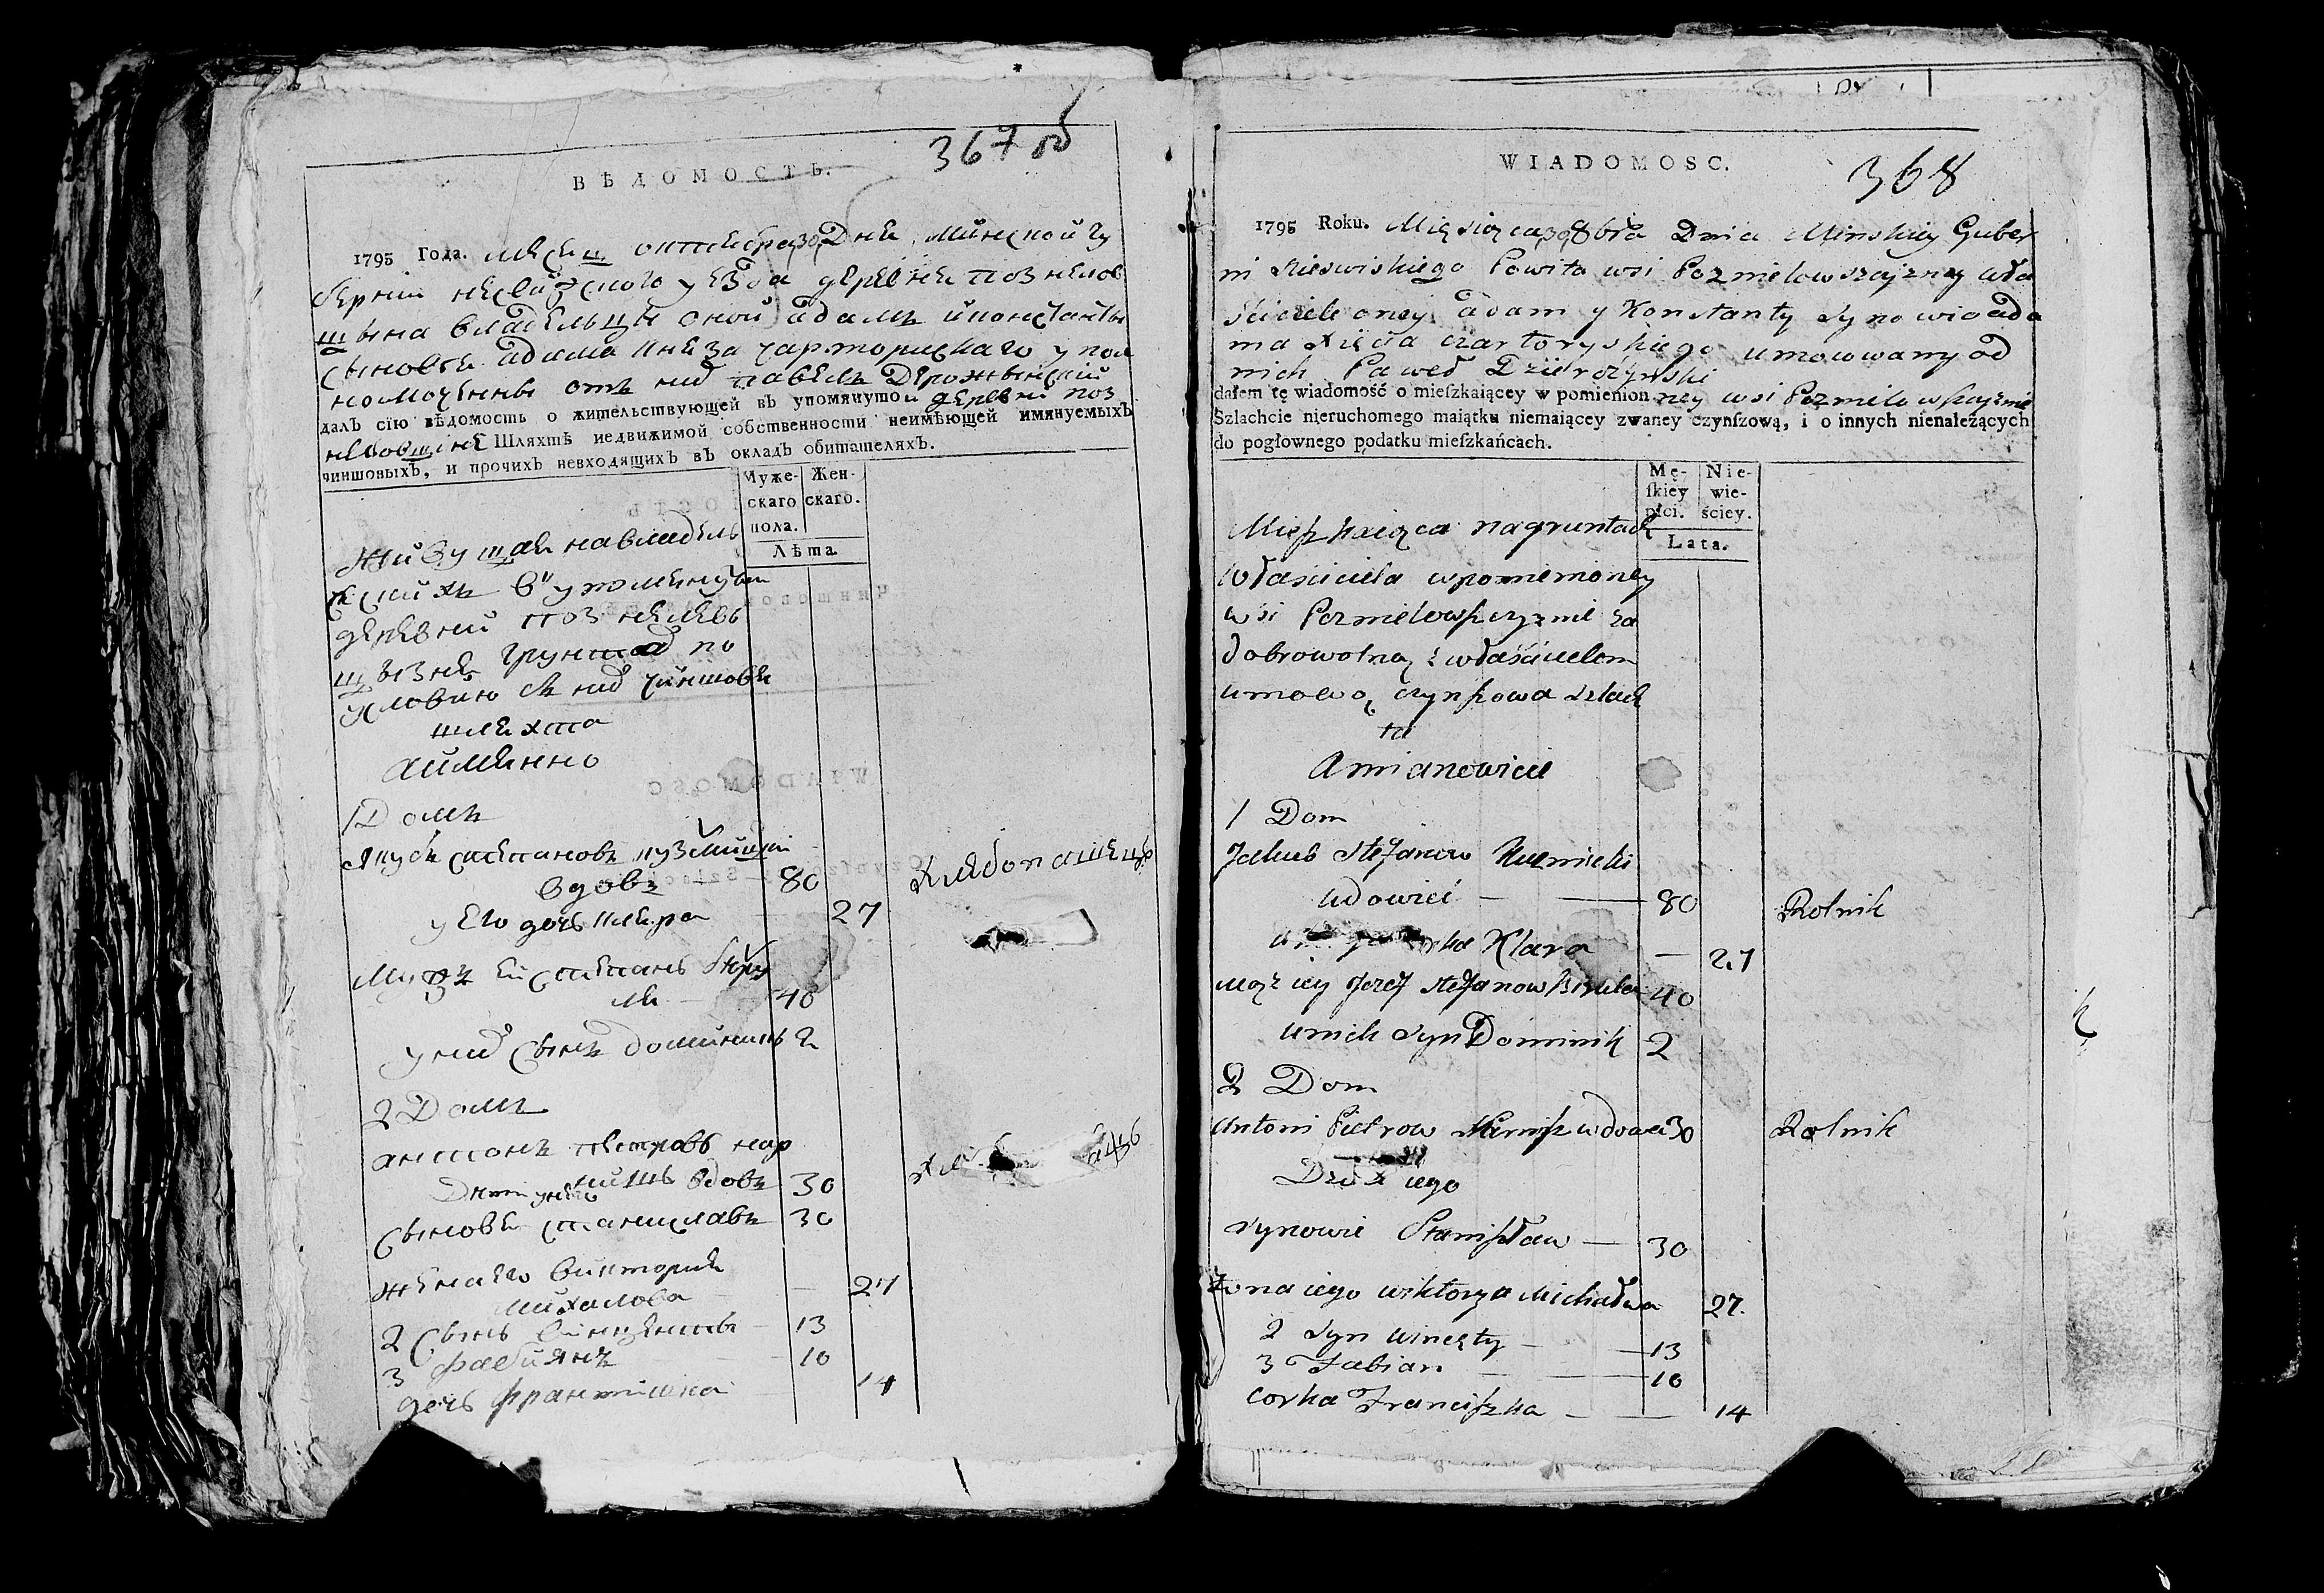 367 об
ВѢДОМОСТЬ.
1795 Года. месяц октебра 30 Дня Минской гу
бернии несвизского уезда деревни познелов
щызна владельцы оной адамъ и константы
сыновья адама князя чарторискаго упол
номоченны отъ них павелъ Держынский
далЪ сїю вѢдомость о жительствующей вЪ упомянутой деревни поз
неловщизне ШляхтѢ недвижимой собственности неимѢющей имянуемыхЪ
чиншовыхЪ, и прочихЪ невходящихЪ вЪ окладЪ обитателяхЪ.
Муже- Жен-
скаго скаго.
пола.
ЛѢта.
живущая на владель
ческихъ в упомянутой
деревни познелев
щызне грунтах по
условию съ них чиншова
шляхта
а именно
1 Домъ
Якубъ степановъ кузмицкий
вдовъ 80 хлебопашецъ
у его дочь клара 27
Мужъ ей степанъ
40
у них сынъ доминикъ 2
2 Домъ
антонъ петровъ кар
вдовъ 30
Дети у него
сыновя станиславъ 30
жена его виктория
михалова 27
2 сынъ винценты 13
3 фабиянъ 10
дочь франтишка 14
368
WIADOMOSC.
1795 Roku. Miesiąca 30 8bra Dnia Minskiey Guber
ni Nieswiskiego Powita wsi Poznielowszczyzney wła
sciciele oney adam y Konstanty synowie ada
ma Xięcia czartoryskiego umocowany od
nich Paweł Dzierożynski
dałem tę wiadomość o mieſzkaiącey w pomienion ney wsi Poznielowszczyznie
Szlachcie nieruchomego maiątku niemaiącey zwaney czynſzową, i o innych nienależących
do pogłownego podatku mieſzkańcach.
Mę- Nie-
ſkiey wie-
płci. ściey.
Lata.
Mieszkaiąca na gruntach
właściciela wpomnioney
wsi Poznielowszczyznie za
dobrowolną z właścicielem
umową czynszowa szlach
ta
a mianowicie
1 Dom
Jakub Stefanow Kuzmicki
wdowiec 80 Rolnik
Klara 27
mąż iey Jozef Stefanow 40
u nich syn Dominik 2
2 Dom
Antoni Pietrow wdowiec 30 Rolnik
Dzieci iego
synowie Stanisław 30
żona iego wiktorya Michałowa 27.
2 syn wincęty 13
3 Fabian 10
corka Franciszka 14